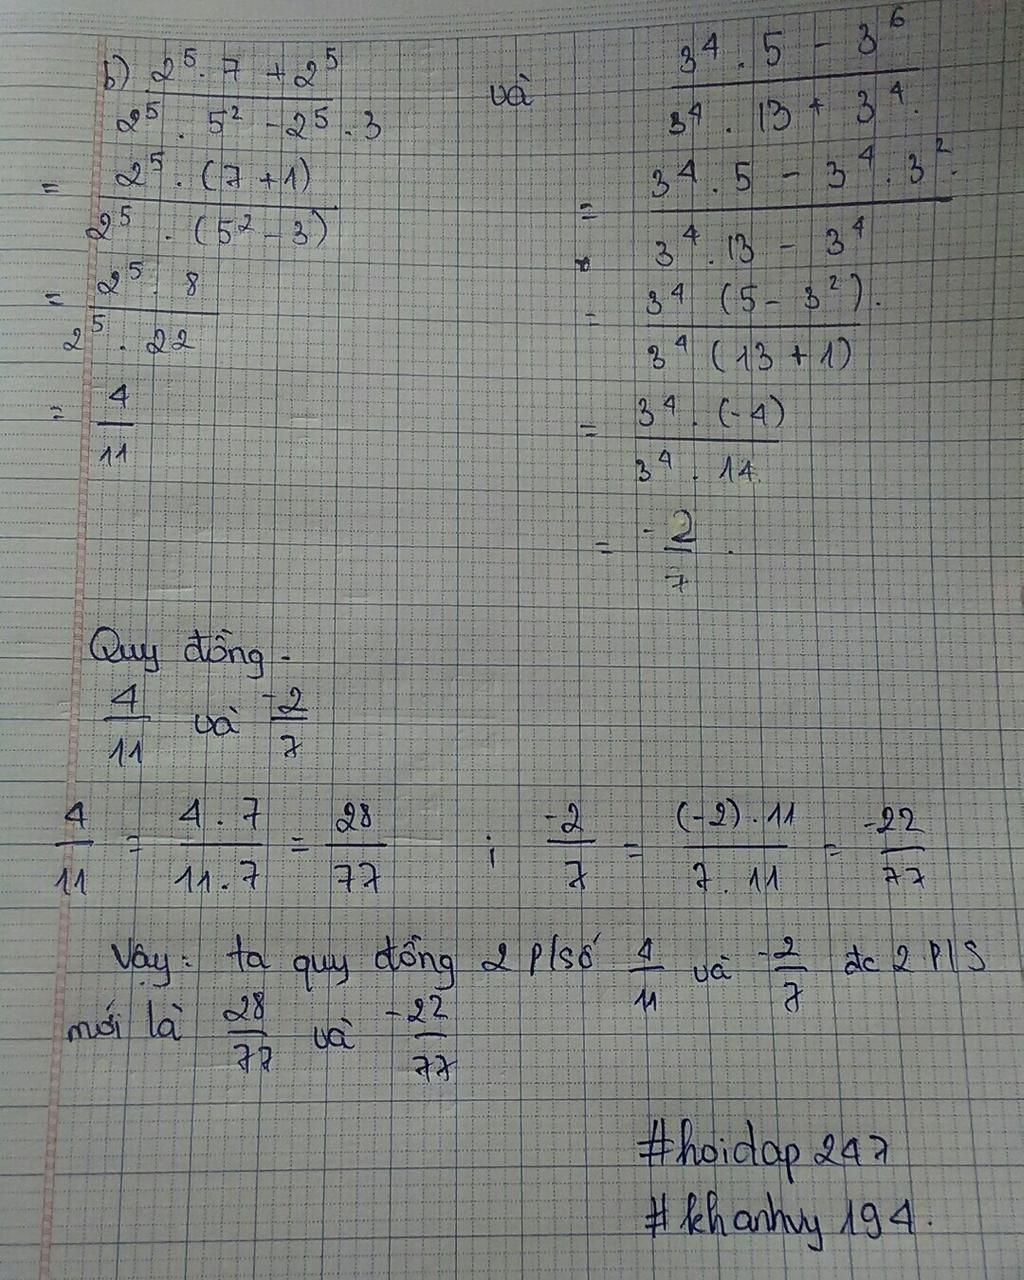 b) 2^5 . 7 + 2^5 / 2^5 . 5^2 - 2^5 . 3 và 3^4 . 5 - 3^6 / 3^4 . 13 + 3^4.
= 2^5 . (7 + 1) / 2^5 . (5^2 - 3)
= 2^5 . 8 / 2^5 . 22
= 4/11
= 3^4 . 5 - 3^4 . 3^2. / 3^4 . 13 - 3^4
= 3^4 (5 - 3^2). / 3^4 (13 + 1)
= 3^4 . (-4) / 3^4 . 14
= -2/7 .
Quy đồng.
4/11 và -2/7
4/11 = 4 . 7 / 11 . 7 = 28/77 ; -2/7 = (-2) . 11 / 7 . 11 = -22/77
Vậy: ta quy đồng 2 P/số 4/11 và -2/7 đc 2 P/S
mới là 28/77 và -22/77
#hoidap 247
#khanhvy 194.